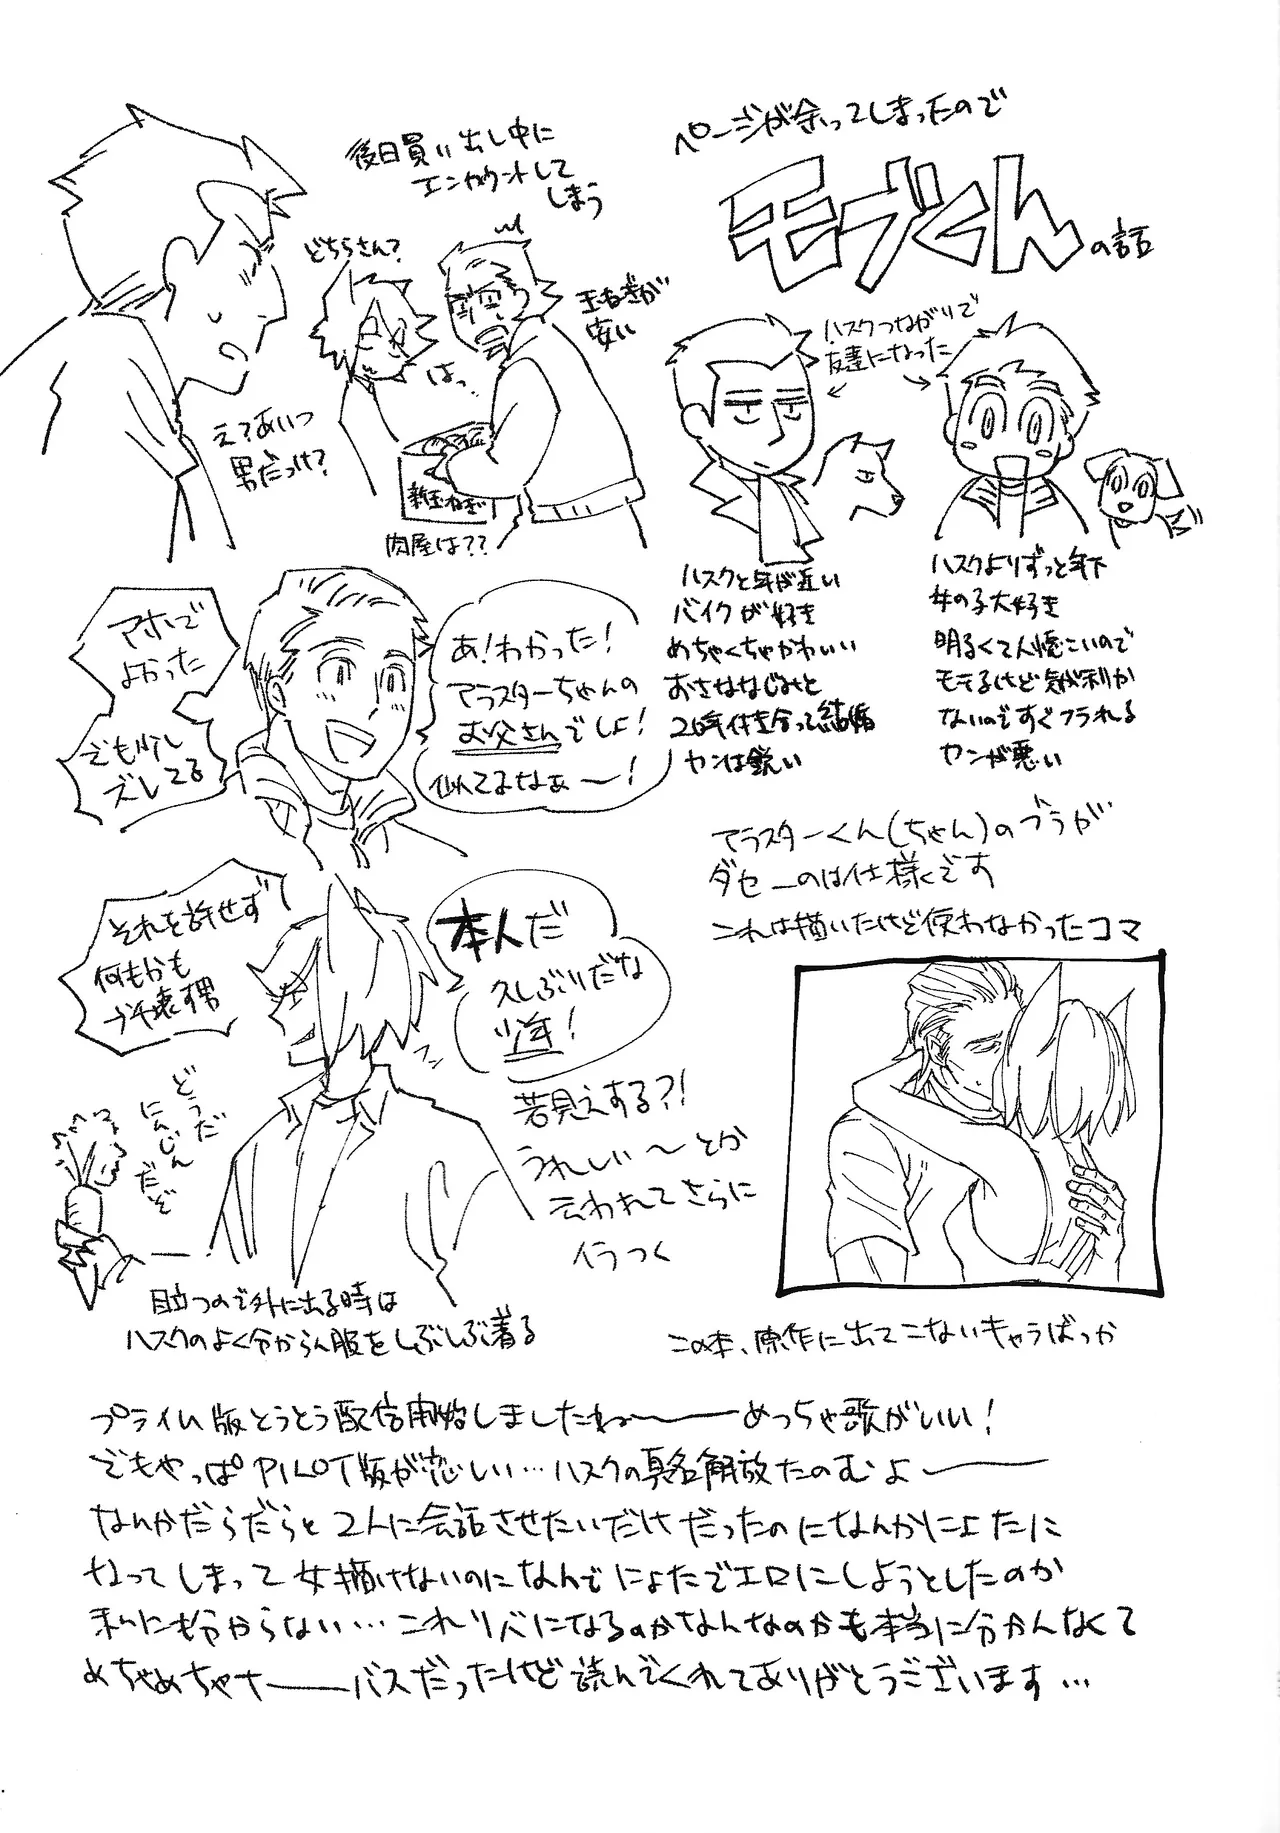 ページが余ってしまったので
モブくんの話
ハスクつながりで
友達になった
ハスクと年が近い
バイクが好き
めちゃくちゃかわいい
おさななじみと
20年付き合って結婚
カンは鋭い
ハスクよりずっと年下
女の子大好き
明るくて人懐こいので
モテるけど気が利か
ないのですぐフラれる
カンが悪い
後日買い出し中に
エンカウントして
しまう
どちらさん?
玉ねぎが
安い
はっ…
え?あいつ
男だっけ?
新玉ねぎ
肉屋は??
あ!わかった!
アラスターちゃんの
お父さんでしょ!
似てるなぁ〜!
アホで
よかった
でも少し
ズレてる
本人だ
久しぶりだな
少年!
それを許せず
何もかも
ブチ壊す男
フン
どうだ
にんじん
だぞ
若見えする?!
うれしい〜とか
云われてさらに
イラつく
目立つので外に出る時は
ハスクのよく分からん服をしぶしぶ着る
アラスターくん(ちゃん)のブラが
ダセーのは仕様です
これは描いたけど使わなかったコマ
この本、原作に出てこないキャラばっか
プライム版とうとう配信開始しましたねーーめっちゃ歌がいい!
でもやっぱPILOT版が恋しい…ハスクの真名解放たのむよーー
なんかだらだらと2人に会話させたいだけだったのになんかにょたに
なってしまって女描けないのになんでにょたでエロにしようとしたのか
私にも分からない…これリバになるのかなんなのかも本当に分かんなくて
めちゃめちゃナーーバスだったけど読んでくれてありがとうございます…